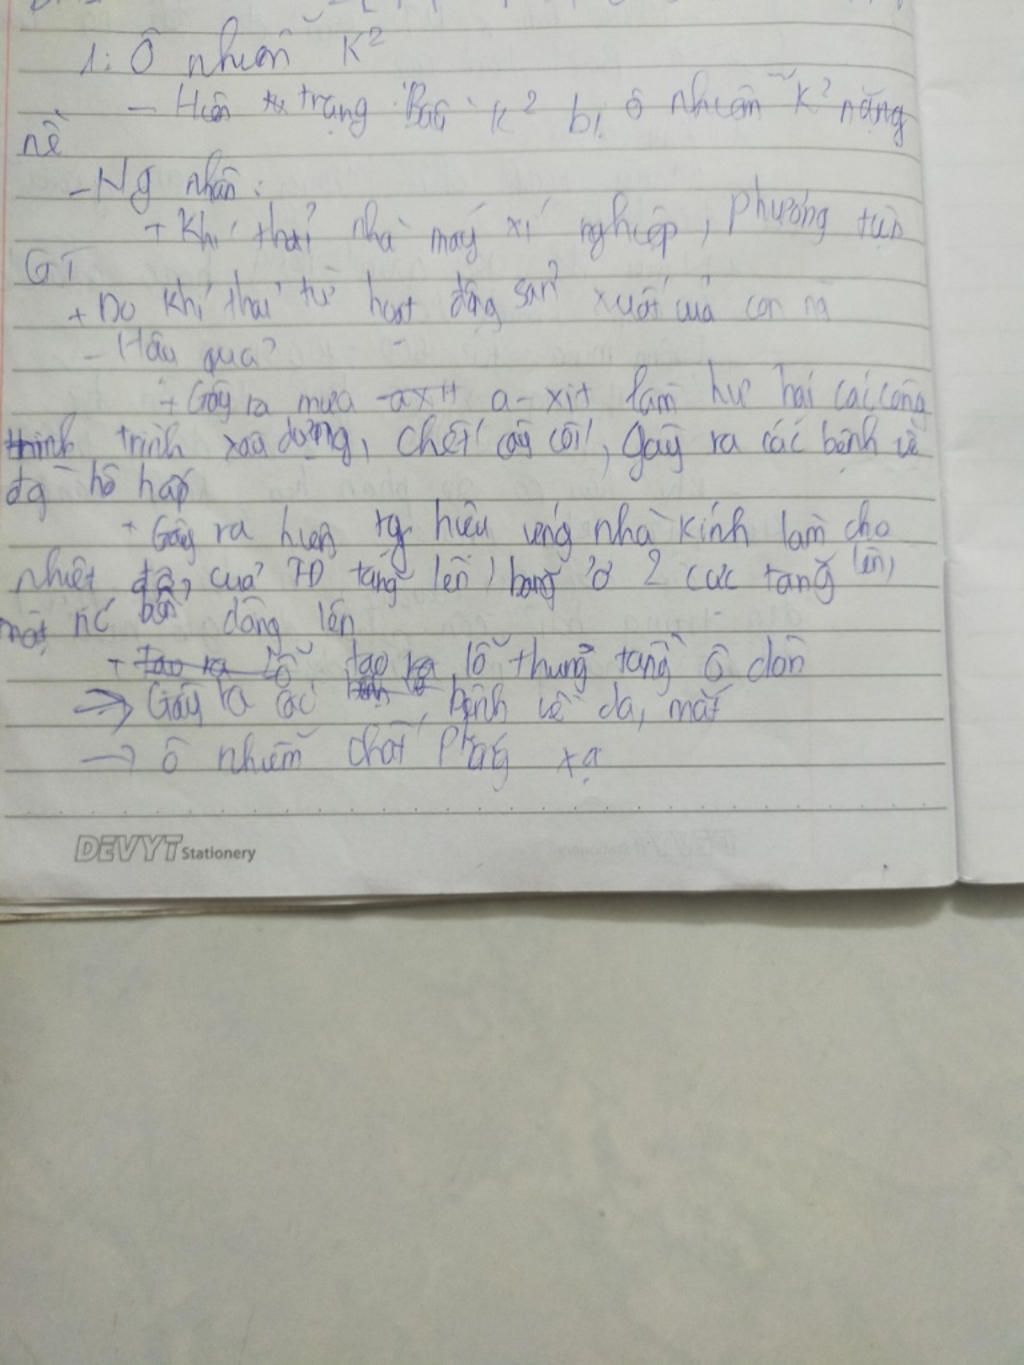 1: Ô nhiễm K²
- Hiện trạng: Bầu K² bị ô nhiễm K² nặng
nề
- Ng nhân:
+ Khí thải nhà máy xí nghiệp, phương tiện
GT
+ Do khí thải từ hoạt động sản xuất của con ng
- Hậu quả?
+ Gây ra mưa a-xit làm hư hại các công
trình xây dựng, chết cây cối, gây ra các bệnh về
đg hô hấp
+ Gây ra hiện tg hiệu ứng nhà kính làm cho
nhiệt độ, của TĐ tăng lên, băng ở 2 cực tang lên,
mặt nc dâng lên
+ tạo lỗ thủng tầng ô dôn
=> Gây ra các bệnh về da, mắt
→ ô nhiễm chất phóng xạ
DEVYT Stationery